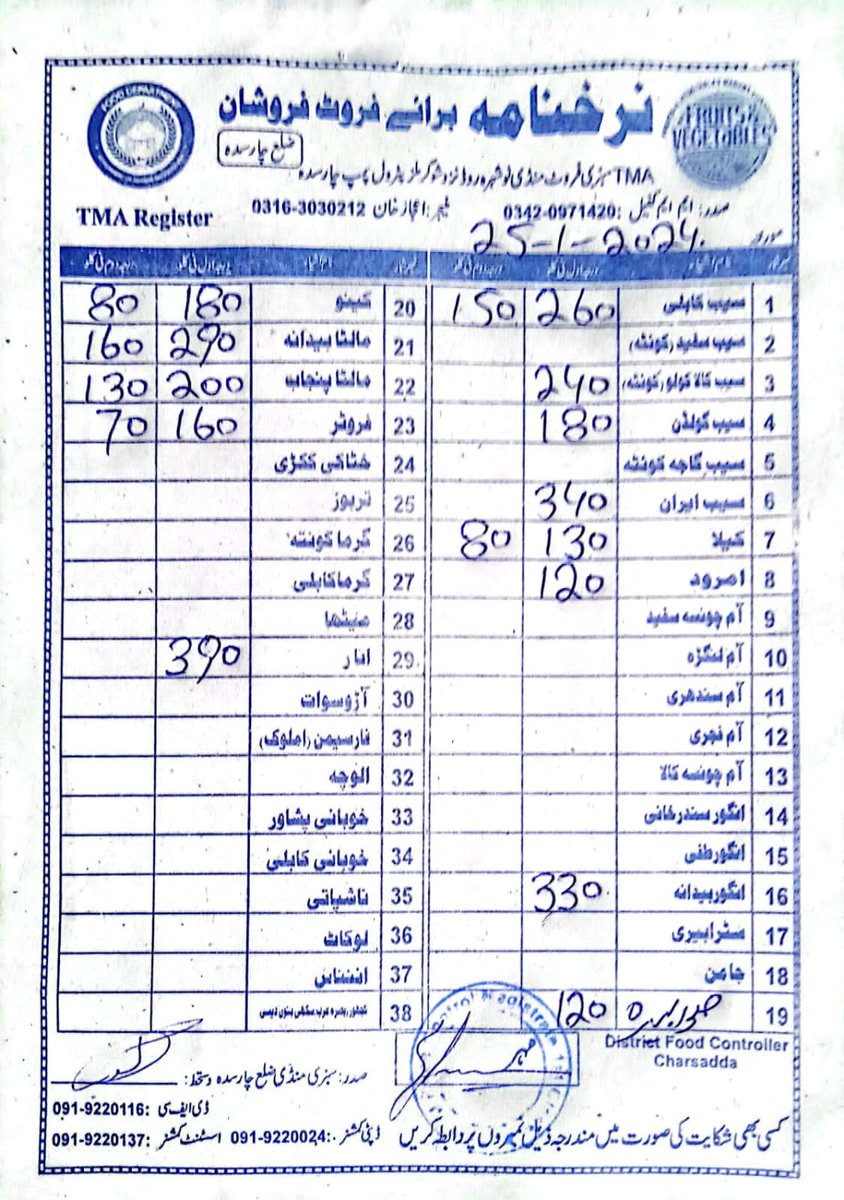 نرخنامہ برائے فروٹ فروشان
FOOD DEPARTMENT
FRUITS & VEGETABLES
ضلع چارسدہ
TMA سبزی فروٹ منڈی نوشہرہ روڈ نزد شوگر ملز پٹرول پمپ چارسدہ
صدر: ایم ایم کفیل: 0342-0971420 منیجر: اعجاز خان 0316-3030212
TMA Register
مورخہ 25-1-2024
نمبر شمار نام اشیاء درجہ اول فی کلو درجہ دوم فی کلو
1 سیب کابلی 260 150
2 سیب سفید (کوئٹہ)
3 سیب کالا کولو (کوئٹہ) 240
4 سیب گولڈن 180
5 سیب گاجہ کوئٹہ
6 سیب ایران 340
7 کیلا 130 80
8 امرود 120
9 آم چونسہ سفید
10 آم لنگڑہ
11 آم سندھری
12 آم فجری
13 آم چونسہ کالا
14 انگور سندرخانی
15 انگور طفی
16 انگور بیدانہ 330
17 سٹرابیری
18 جامن
19 120
نمبر شمار نام اشیاء درجہ اول فی کلو درجہ دوم فی کلو
20 کینو 180 80
21 مالٹا بیدانہ 290 160
22 مالٹا پنجاب 200 130
23 فروٹر 160 70
24 خٹاکی ککڑی
25 تربوز
26 گرما کوئٹہ
27 گرما کابلی
28 میٹھا
29 انار 390
30 آڑو سوات
31 فارسیمن (املوک)
32 الوچہ
33 خوبانی پشاور
34 خوبانی کابلی
35 ناشپاتی
36 لوکاٹ
37 انناس
38 کھجور
District Food Controller
Charsadda
مہر
صدر: سبزی منڈی ضلع چارسدہ دستخط:
کسی بھی شکایت کی صورت میں مندرجہ ذیل نمبروں پر رابطہ کریں
ڈی ایف سی: 091-9220116
ڈپٹی کمشنر: 091-9220024 اسسٹنٹ کمشنر: 091-9220137